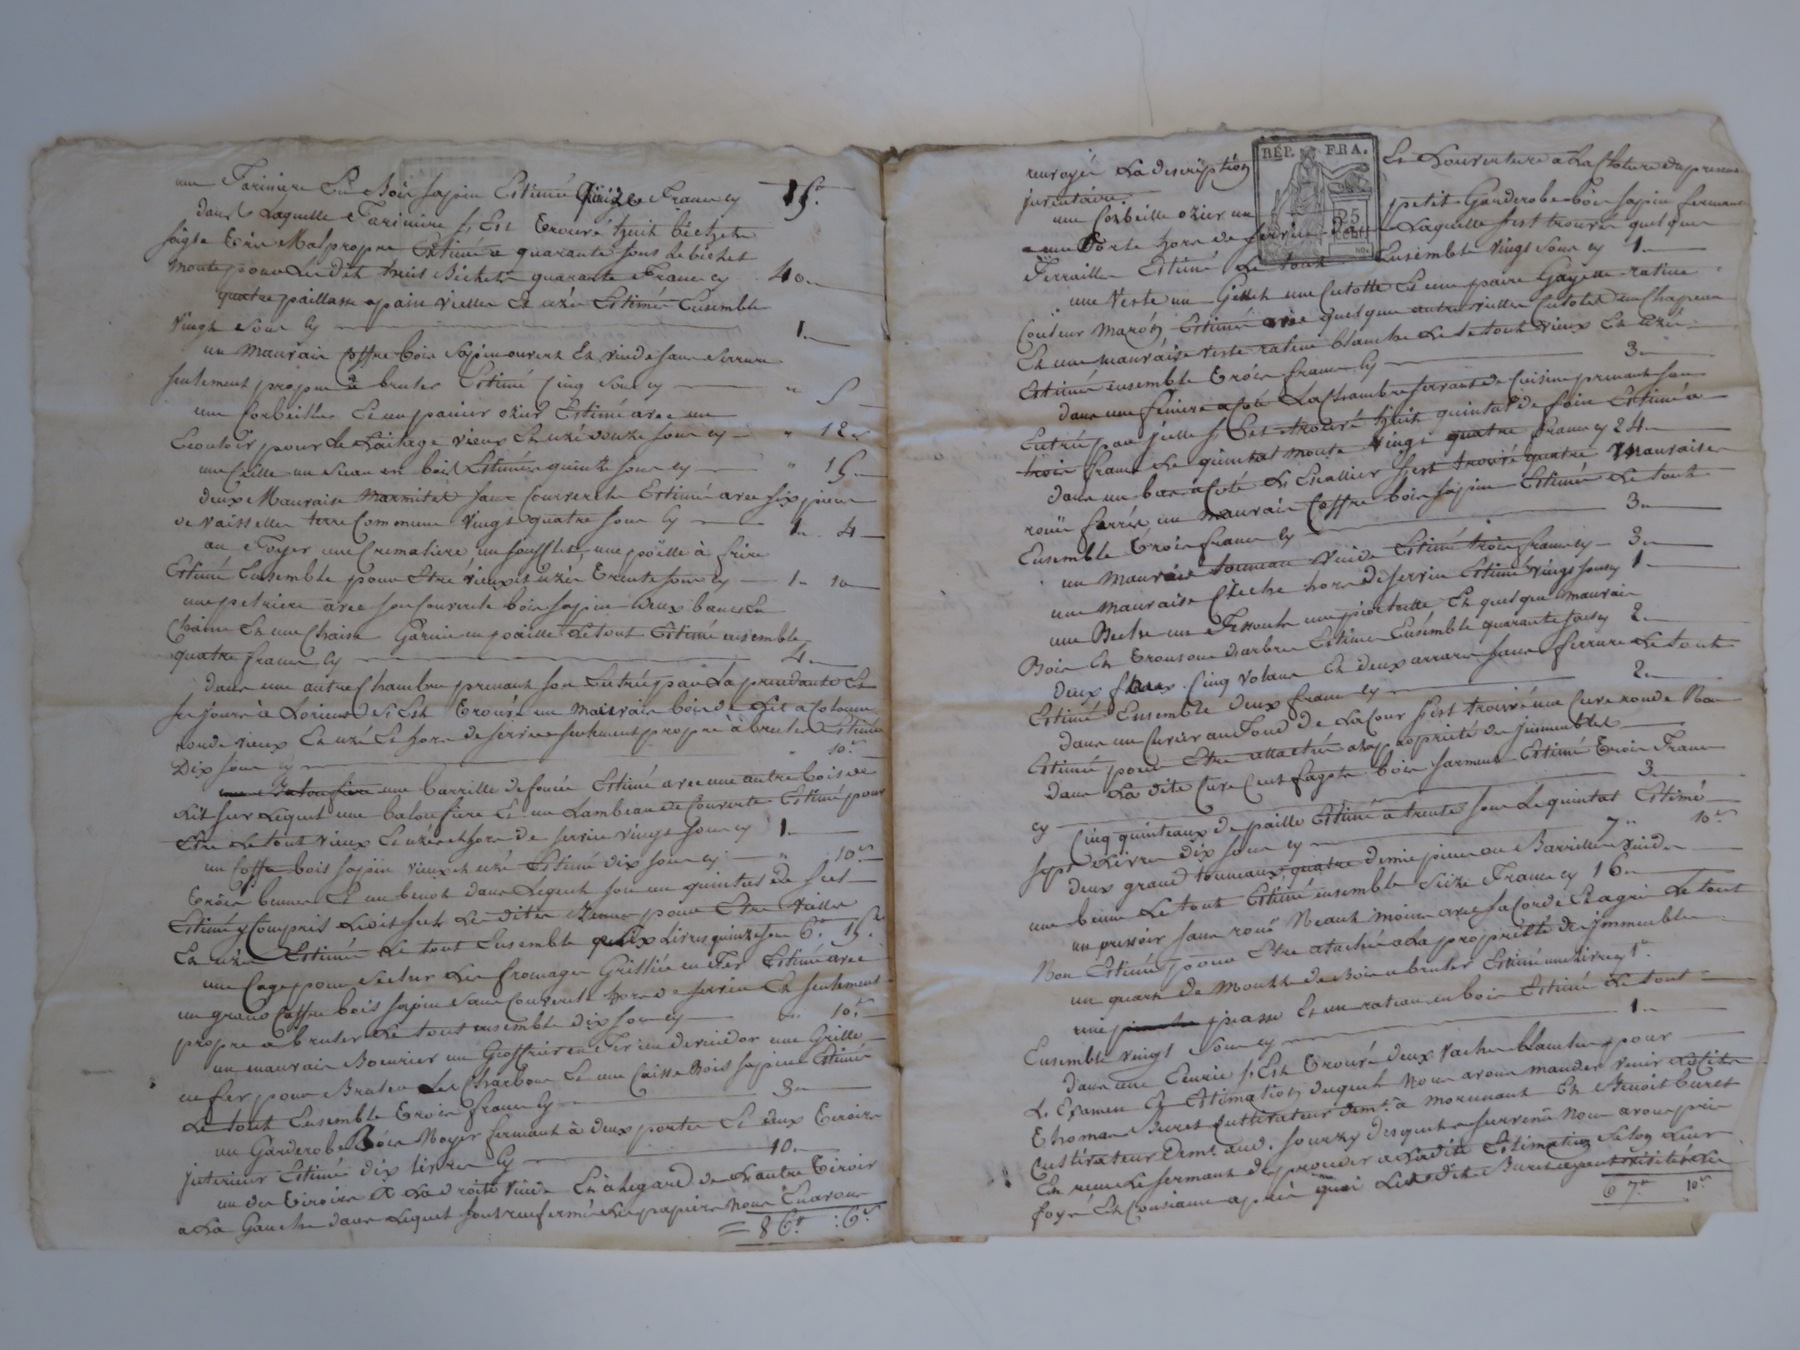 une Fariniere En Bois sapin Estimé Quinze Francs cy 15.
dans Laquelle Fariniere s'Est trouvé huit bichets
seigle Malpropre Estimé a quarante sous Le bichet
monte pour Le dit huit Bichets quarante Francs cy 40
quatre paillasse paille vielles Et uzé Estimé Ensemble
Vingt Sous cy 1
un Mauvais coffre bois Sapin ouvert Et vuide sans Serrure
seulement propre a bruler Estimé Cinq Sous cy " 5
une Corbeille Et un panier ozier Estimé avec un
Ecouloir pour Le Laitage vieux Et uzé douze sous cy " 12
une Seille un Siau en bois Estimé quinze sous cy " 15
deux Mauvaise Marmites sans Couvercle Estimé avec six pieces
de vaisselles terre Commune Vingt quatre sous cy 1 4
au Foyer une Cremaliere un soufflet, une poëlle à frire
Estimé Ensemble pour Etre vieux et uzé trente sous cy 1 10
une petriere avec son Couvercle bois sapin deux bancs En
Chaine Et une Chaise Garnie en paille Le tout Estimé ensemble
quatre francs cy 4
dans une autre Chambre prenant son Entrée par La precedante Et
ses jours à Lorient s'Est trouvé un Mauvais bois de Lit a Colonne
ronde vieux Et uzé Et hors de service seulement propre à bruler Estimé
Dix sous cy " 10
une Baloufiere une barrille de foué Estimé avec une autre bois de
Lit sur Lequel une baloufiere Et un Lambeau de Couverte Estimé pour
Etre Le tout vieux Et uzé et hors de service vingt sous cy 1
un Coffre bois sapin vieux et uzé Estimé dix sous cy " 10
trois bennes Et un benot dans Lequel son un quintal de
Estimé y Compris Ledit Les dites Bennes pour Etre vielles
Et uzé Estimé Le tout Ensemble Six Livres quinze sous 6 15
une Cage pour Secher Les fromages Grilliée en Fer Estimé avec
un grand Coffre bois sapin sans Couvercle hors de service Et seulement
propre a bruler Le tout ensemble dix sous cy " 10
un mauvais Beurier un en Fer un devindor une Grille
en fer pour Bruler Le Charbon Et une Caisse Bois sapin Estimé
Le tout Ensemble trois francs cy 3
un Garderobe Bois Noyer fermant à deux portes Et deux tiroirs
interieur Estimé dix livres cy 10
un des tiroirs A La droite vuide Et à Legard de Lautre tiroir
a La Gauche dans Lequel sont renfermé Les papiers Nous En avons
= 86 : 6
renvoyé La description Et Louverture a La Cloture du present
inventaire.
REP. FRA.
25
CENT.
une Corbeille ozier un petit Garderobe bois sapin fermant
a une Porte hors de service dans Laquelle s'est trouvé quelque
Ferrailles Estimé Le tout Ensemble vingt sous cy 1
une Veste un Gillet une Culotte Et une paire ratine
Couleur Maron Estimé avec quelque autre vielles Culotes un Chapeau
Et une mauvaise veste ratine blanche Le tout vieux Et uzé
Estimé ensemble trois francs cy 3
dans une feniere a Coté La Chambre servant de Cuisine prenant son
Entrée par jcelle s'Est trouvé huit quintal de foin Estimé a
trois francs Le quintal monte vingt quatre francs cy 24
dans un bas a Coté L'Escallier s'est trouvé quatre Mauvaises
rouë ferrée un Mauvais Coffre bois sapin Estimé Le tout
Ensemble trois francs cy 3
un Mauvais tonneau Vuide Estimé trois francs cy 3
une Mauvaise Cleche hors de service Estimé vingt sous cy 1
une Beche une une piochette Et quelque mauvais
Bois Et trousons darbres Estimé Ensemble quarante sous cy 2
deux Cinq volans Et deux arrares sans ferrure Le tout
Estimé Ensemble deux francs cy 2
dans un Cuvier au Fond de La Cour s'est trouvé une Cuve ronde Non
Estimé pour Etre attaché a La propriété des jmmeubles
dans La dite Cuve Cent fagots bois sarment Estimé trois Francs
cy 3
Cinq quinteaux de paille Estimé a trente sous Le quintal Estimé
sept Livres dix sous cy 7 10
deux grand tonneaux, quatre demie pieces ou Barrilles vuides
une benne Le tout Estimé ensemble Seize Francs cy 16
un pressoir sans rouë Neant moins avec sa Corde Et agrés Le tout
Non Estimé pour Etre atachée a La propriété des jmmeubles
un quart de Moulle de Bois a bruler Estimé une livre cy 1
une piasse Et un rateau en bois Estimé Le tout
Ensemble vingt Sous cy 1
dans une Ecurie s'Est trouvé deux vaches blanches pour
L'Examen Et Estimation duquel Nous avons mandés venir
Thomas Buret Cultivateur demt. à Mornant Et Benoit Buret
Cultivateur demt. aud. Sourzy desquels survenu Nous avons pris
Et reçu Le serment de proceder a Ladite Estimation Selon Leur
foye Et Consiance après quoi Lesdits Buret ayant visité Les
67 10